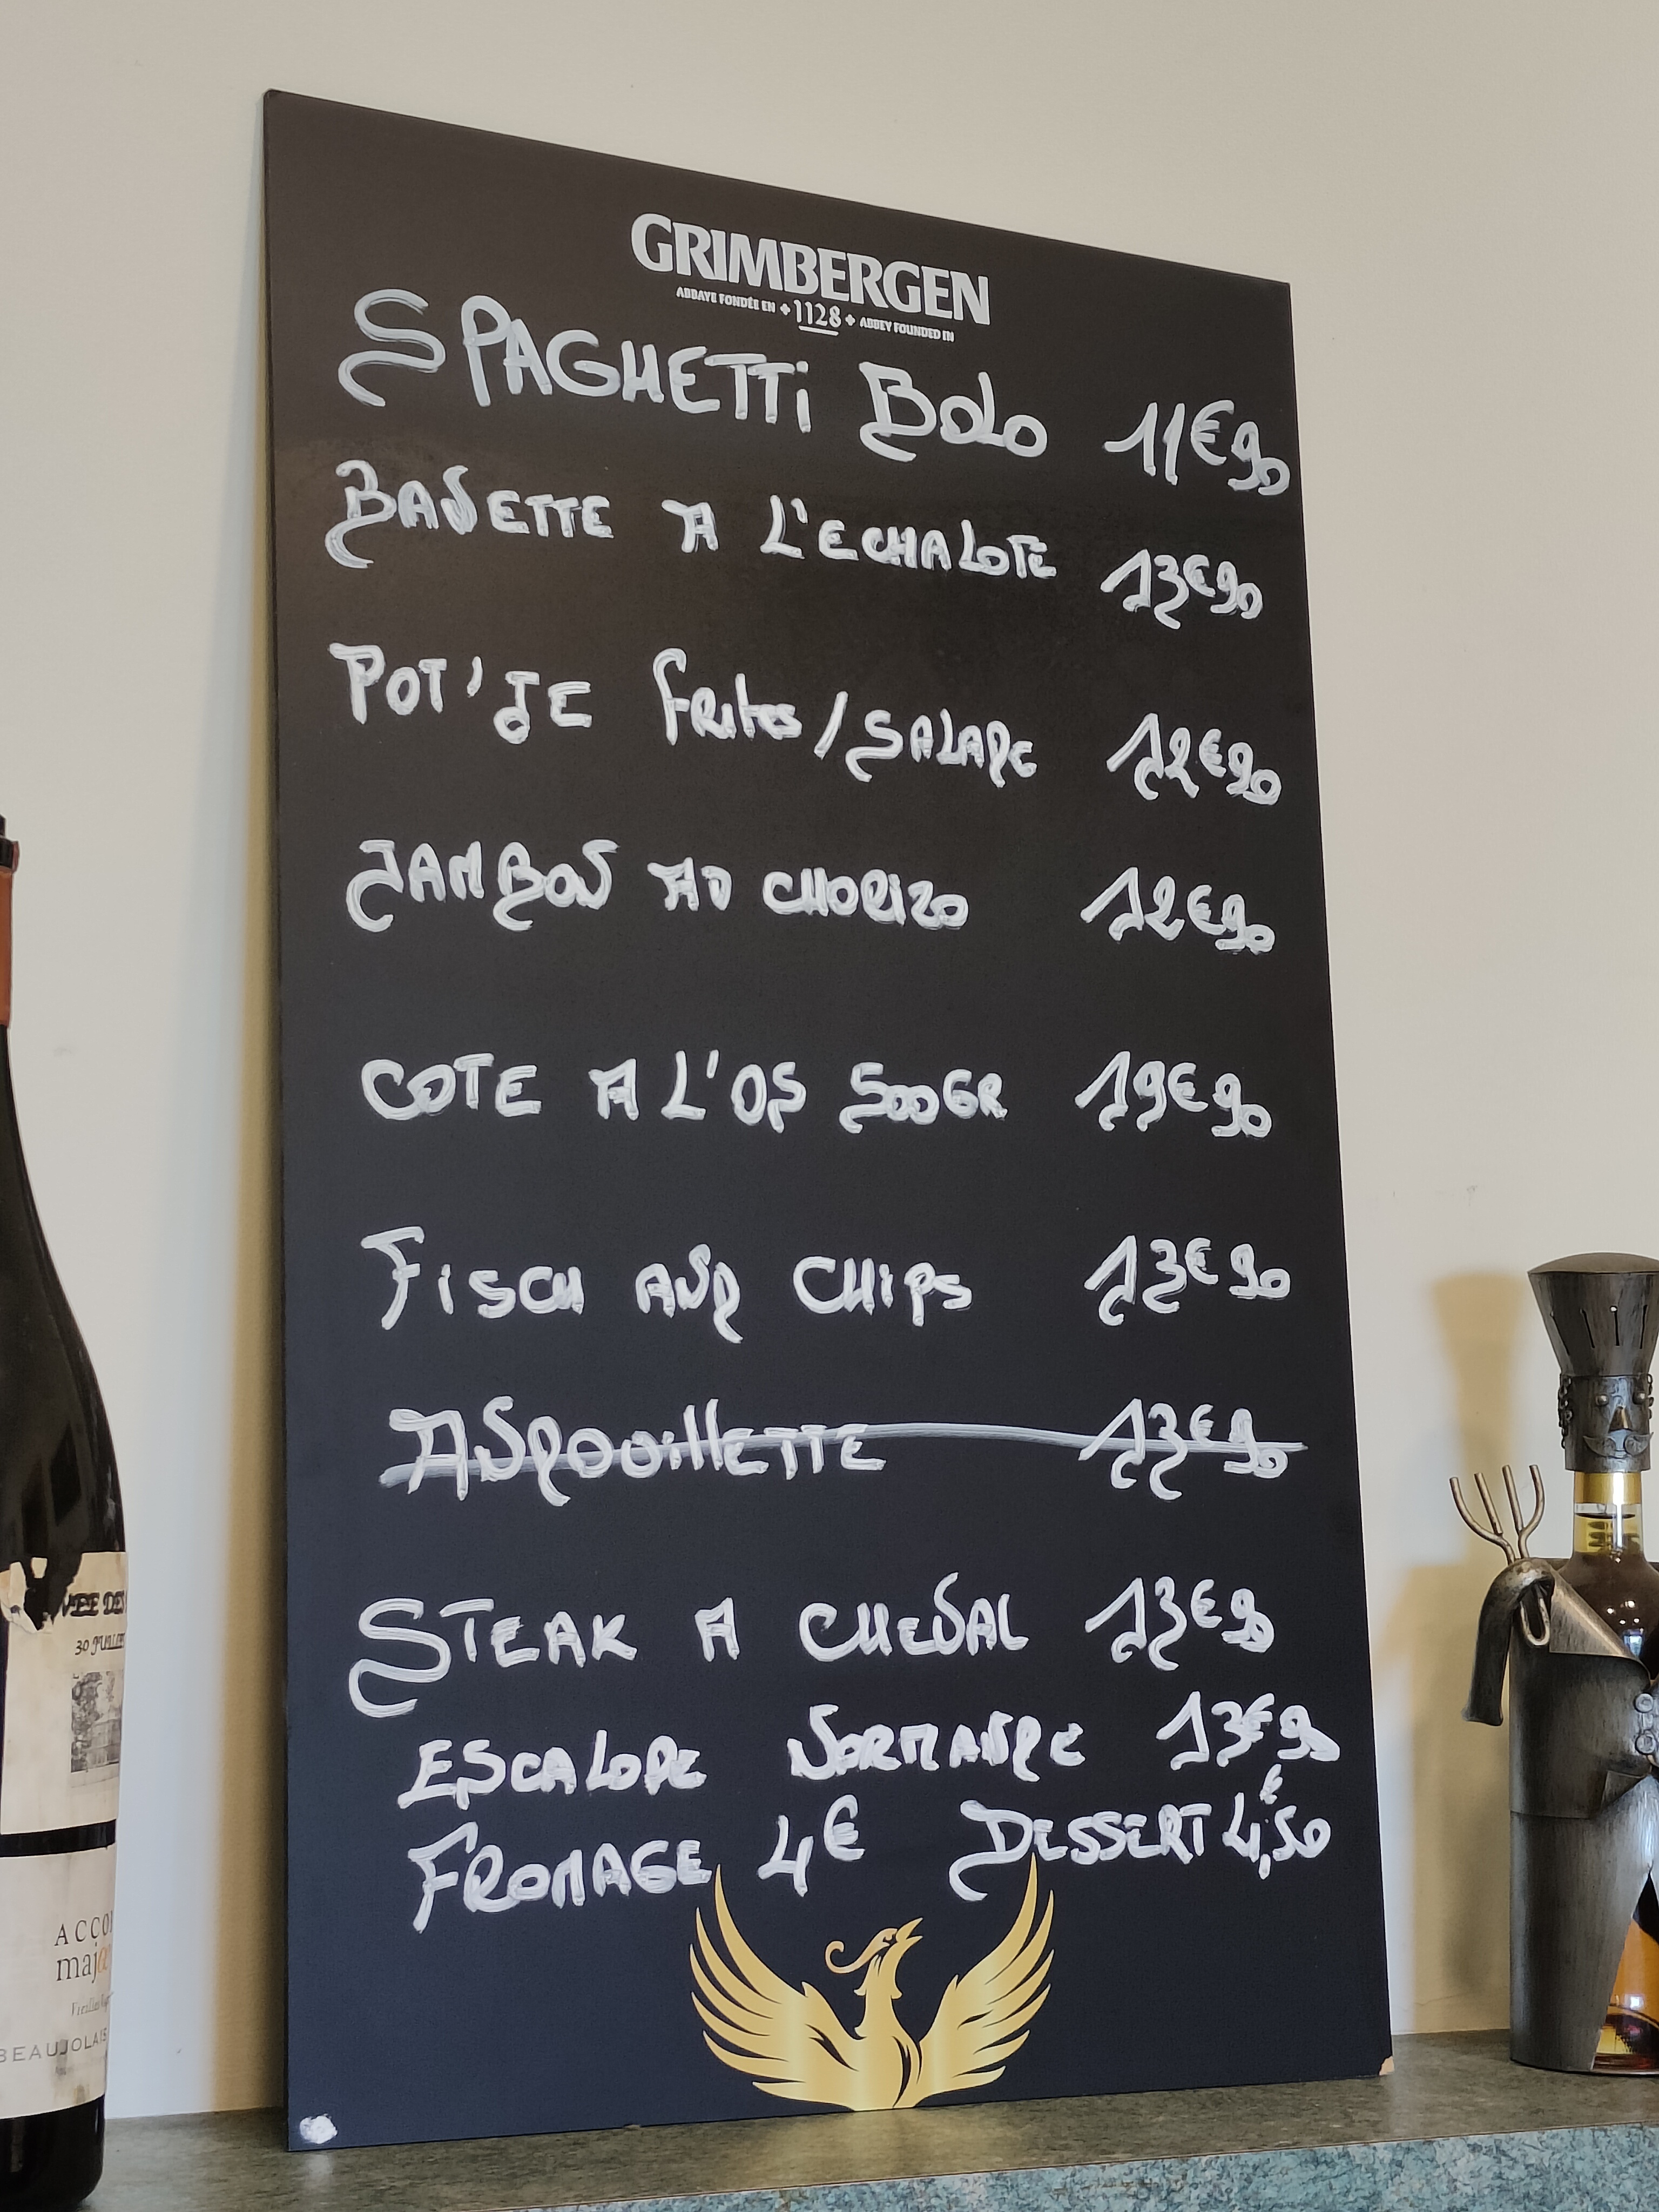 GRIMBERGEN
ABBAYE FONDÉE EN 1128 ABBEY FOUNDED IN
SPAGHETTi BOLO 11€90
BAVETTE A L'ECHALOTE 13€90
POT'JE FRites/SALADE 12€90
JAMBON AU CHORIZO 12€90
COTE A L'OS 500GR 19€90
FISCH AND CHIPS 13€90
ANDOUillETTE 13€90
STEAK A CHEVAL 13€90
ESCALOPE NORMANDE 13€90
FROMAGE 4€ DESSERT 4,50€
VEE DES
30 JUILLET
ACCO
maj
BEAUJOLAIS